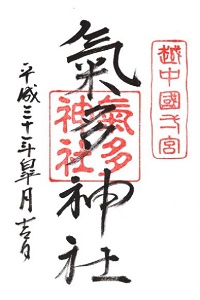 越中國一宮
氣多神社
氣多神社
平成二十三年皐月